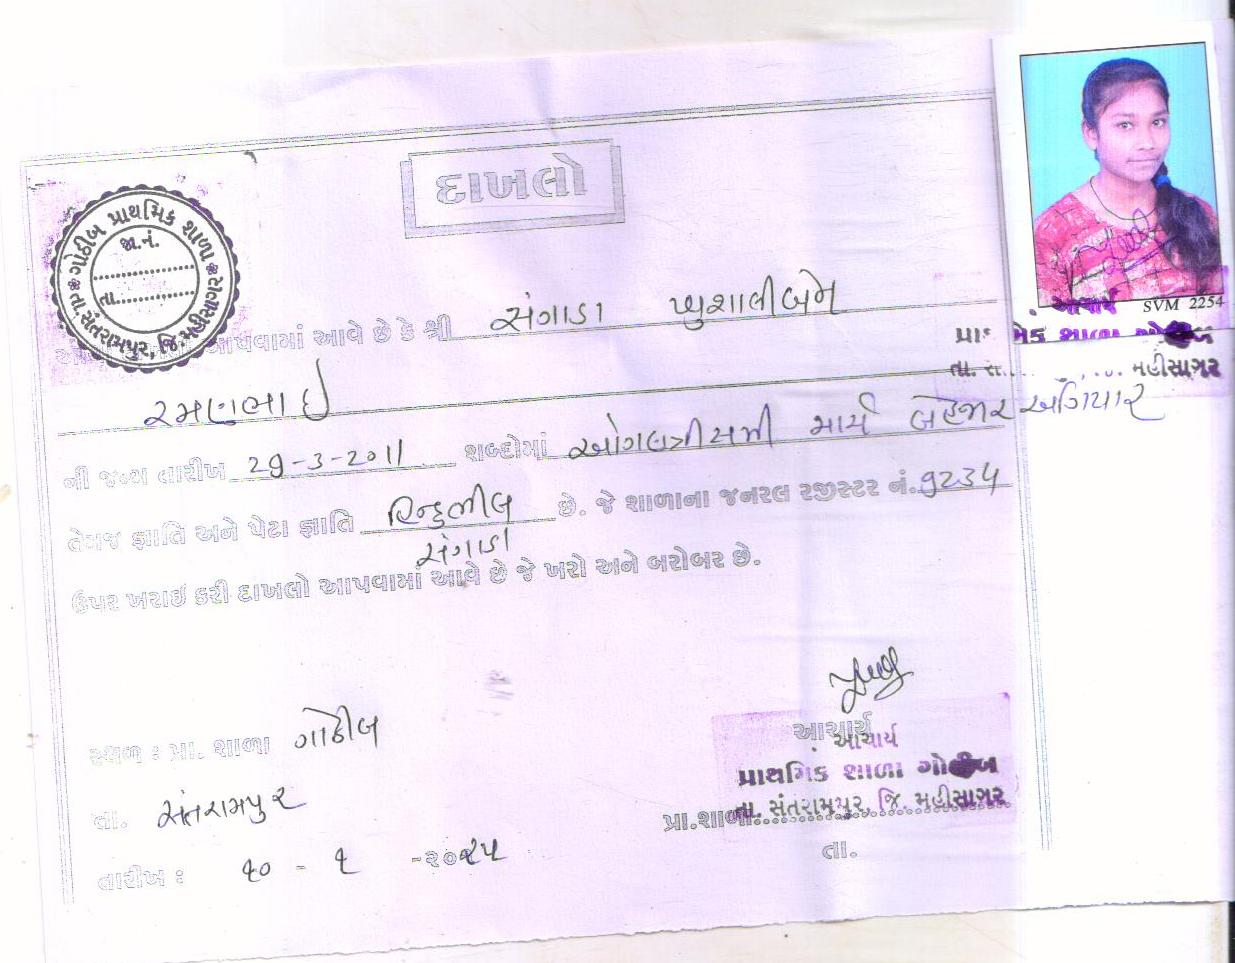 દાખલો
ગોઠીબ પ્રાથમિક શાળા
જા.નં.
તા.
તા.સંતરામપુર, જિ.મહીસાગર
SVM 2254
આચાર્ય
મહીસાગર
આપવામાં આવે છે કે શ્રી સંગાડા ખુશાલીબેન
રમણભાઇ
ની જન્મ તારીખ 29-3-2011 શબ્દોમાં ઓગલત્રીસમી માર્ચ બેહજાર અગિયાર
તેમજ જ્ઞાતિ અને પેટા જ્ઞાતિ હિન્દુભીલ છે. જે શાળાના જનરલ રજીસ્ટર નં. 9234
સંગાડા
ઉપર ખરાઇ કરી દાખલો આપવામાં આવે છે જે ખરો અને બરોબર છે.
સ્થળ : પ્રા. શાળા ગોઠીબ
આચાર્ય
આચાર્ય
પ્રાથમિક શાળા ગોઠીબ
તા. સંતરામપુર
તા. સંતરામપુર, જિ. મહીસાગર
પ્રા.શાળા
તા.
તારીખ : ૧૦ - ૬ -૨૦૨૫